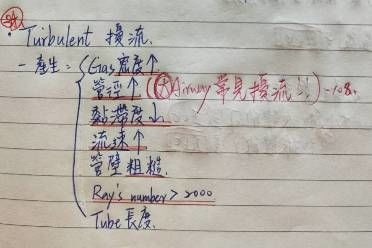 Turbulent 擾流.
- 產生: Gas 密度↑
管徑↑ (大Airway 常見擾流!!) -108.
黏滯度↓
流速↑
管壁粗糙.
Ray's number > 2000
Tube 長度.